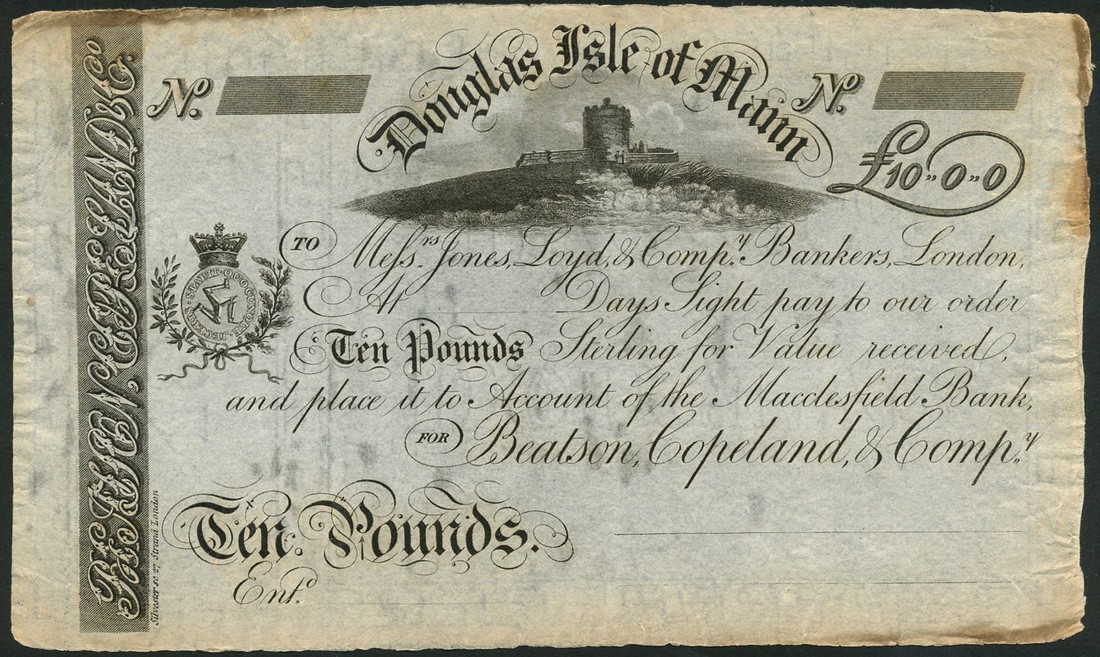 BEATSON, COPELAND, & Co.
No.
Douglas Isle of Mann
No.
£10"0"0
TO Messrs. Jones, Loyd, & Compy. Bankers, London,
At Days Sight pay to our order
Ten Pounds Sterling for Value received,
and place it to Account of the Macclesfield Bank,
FOR Beatson, Copeland, & Compy.
Ten Pounds.
Entd.
Silvester sc 27 Strand London